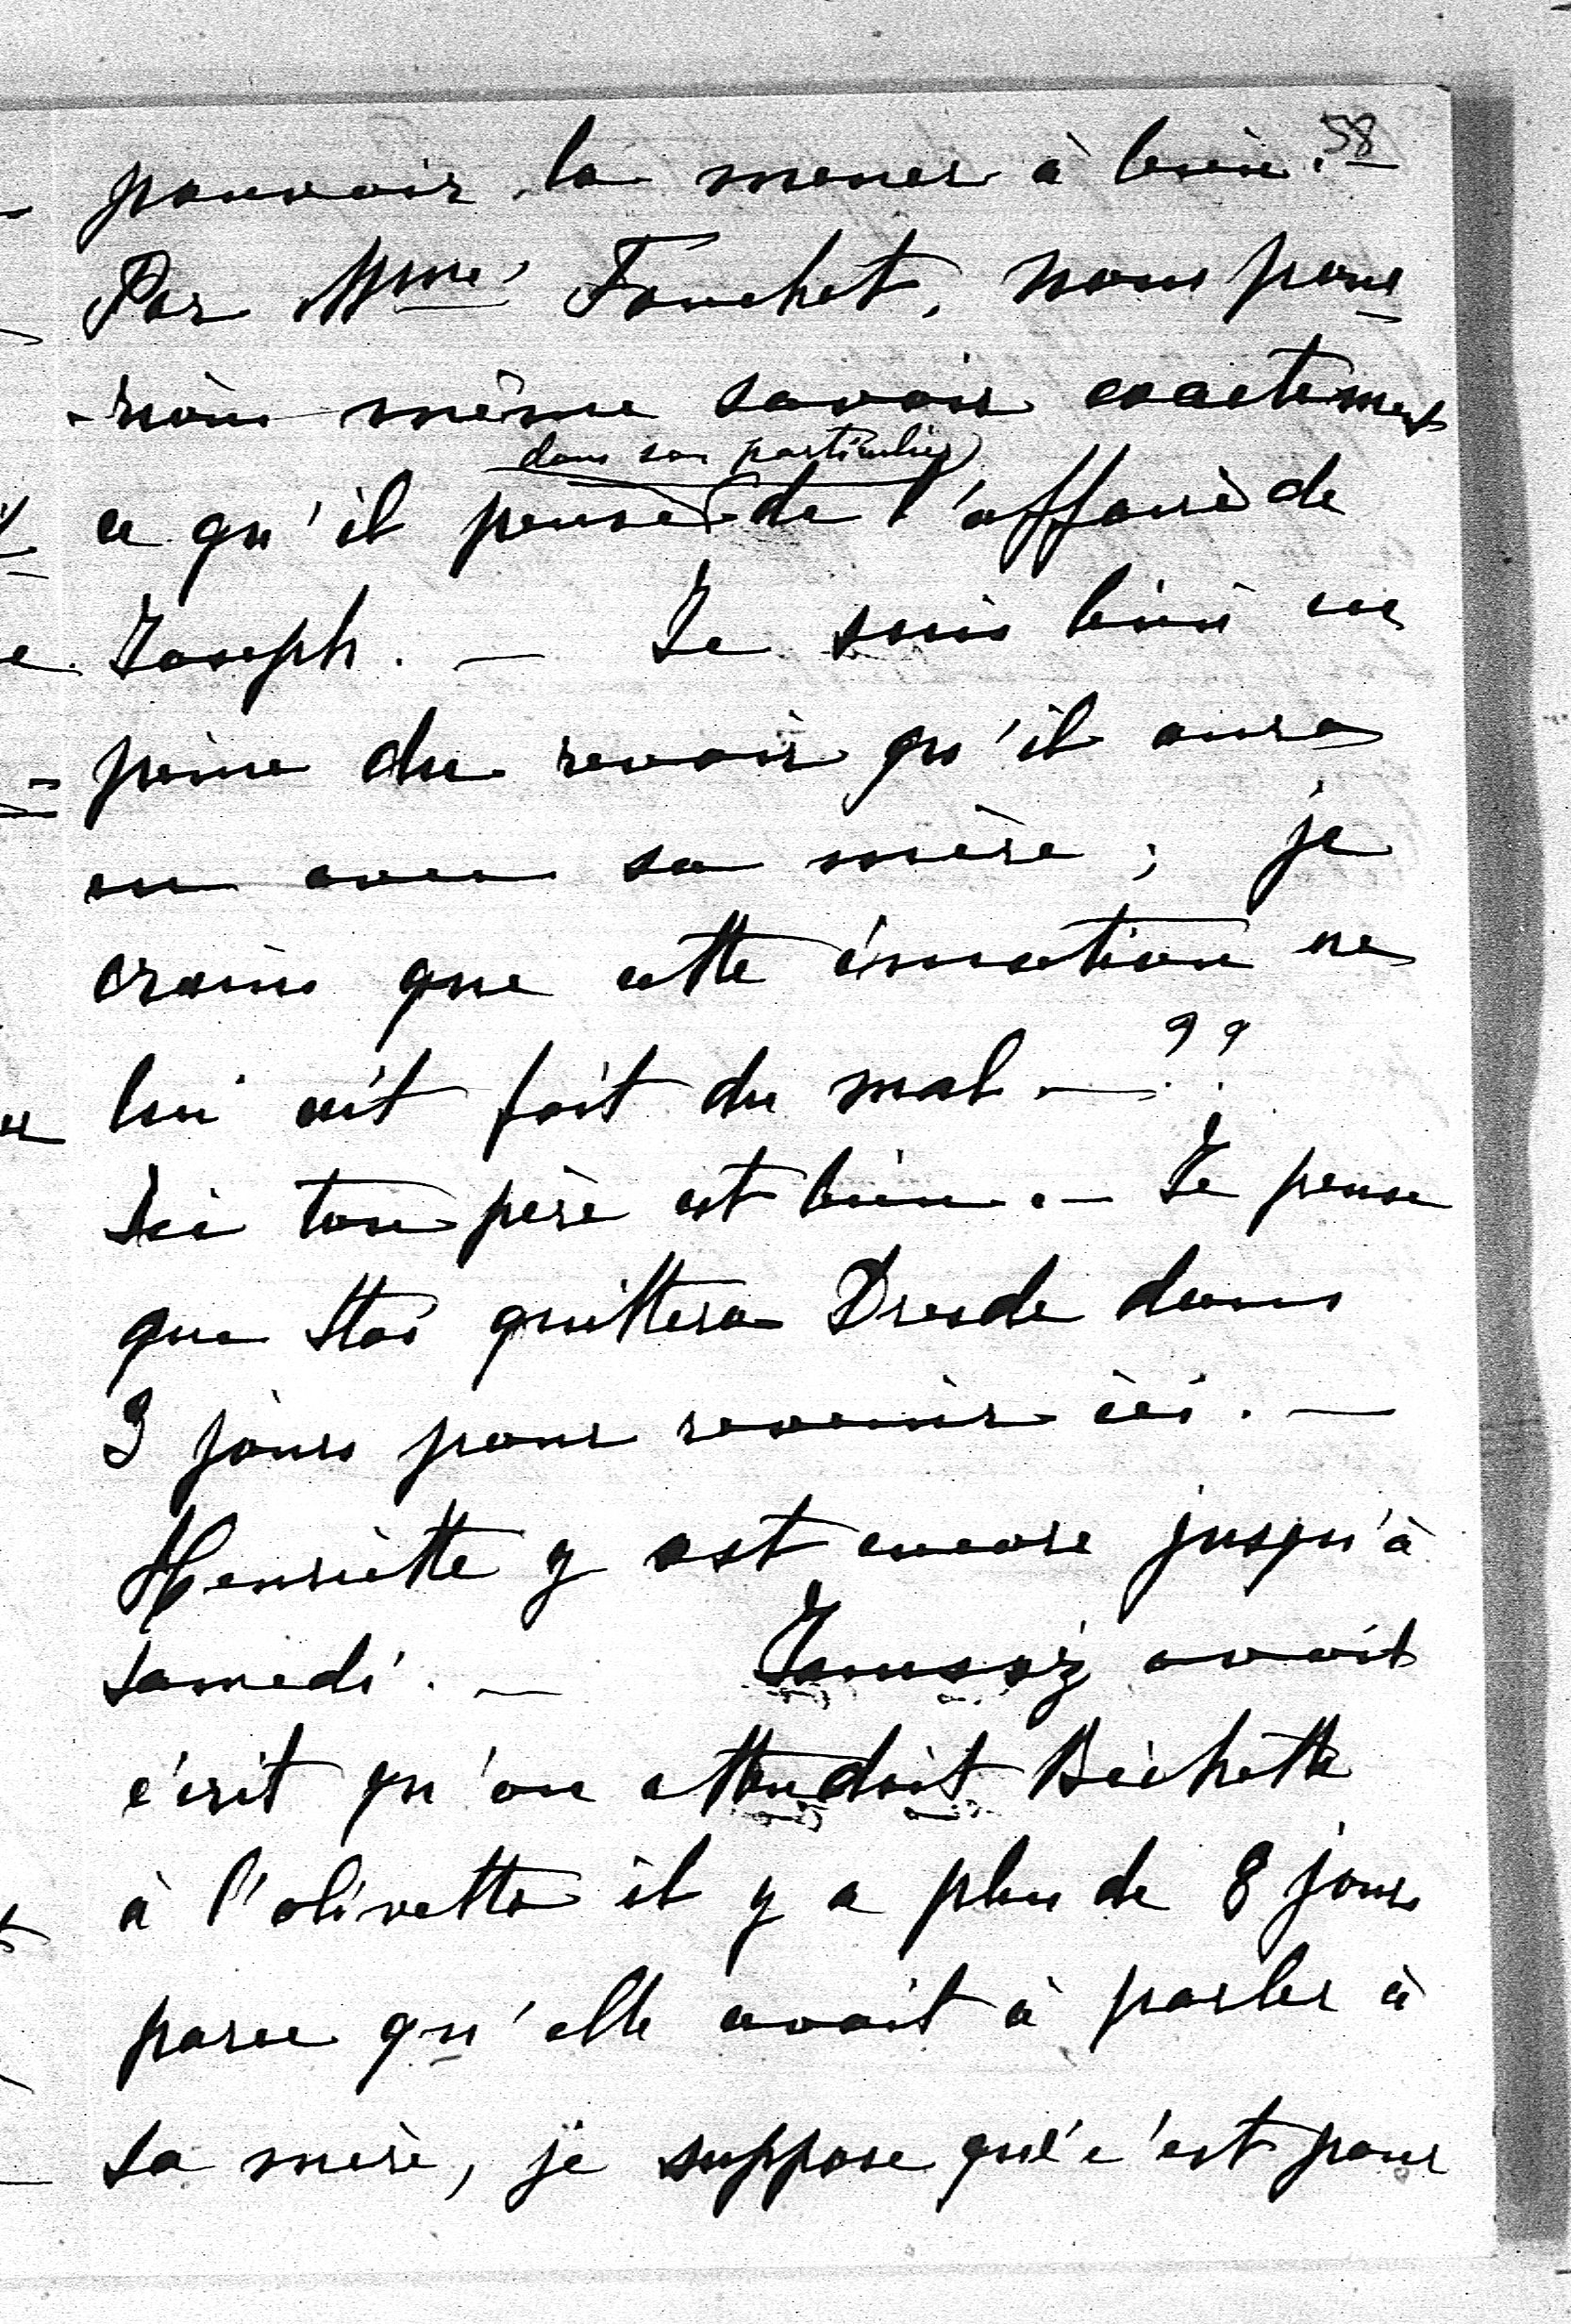 58
pouvoir la mener à bien. —
Par Mme Fouchet, nous pour
-rons même savoir exactement
dans son particulier
ce qu'il pense de l'affaire de
Joseph. — Je suis bien en
peine du revoir qu'il aura
eu avec sa mère ; je
crains que cette émotion ne
lui ait fait du mal — ??
Ici ton père est bien. — Je pense
que Stas quittera Dresde dans
3 jours pour revenir ici. —
Henriette y est encore jusqu'à
samedi. — avait
écrit qu'on attendait Bichette
à l'olivette il y a plus de 8 jours
parce qu'elle avait à parler à
sa mère, je suppose que c'est pour